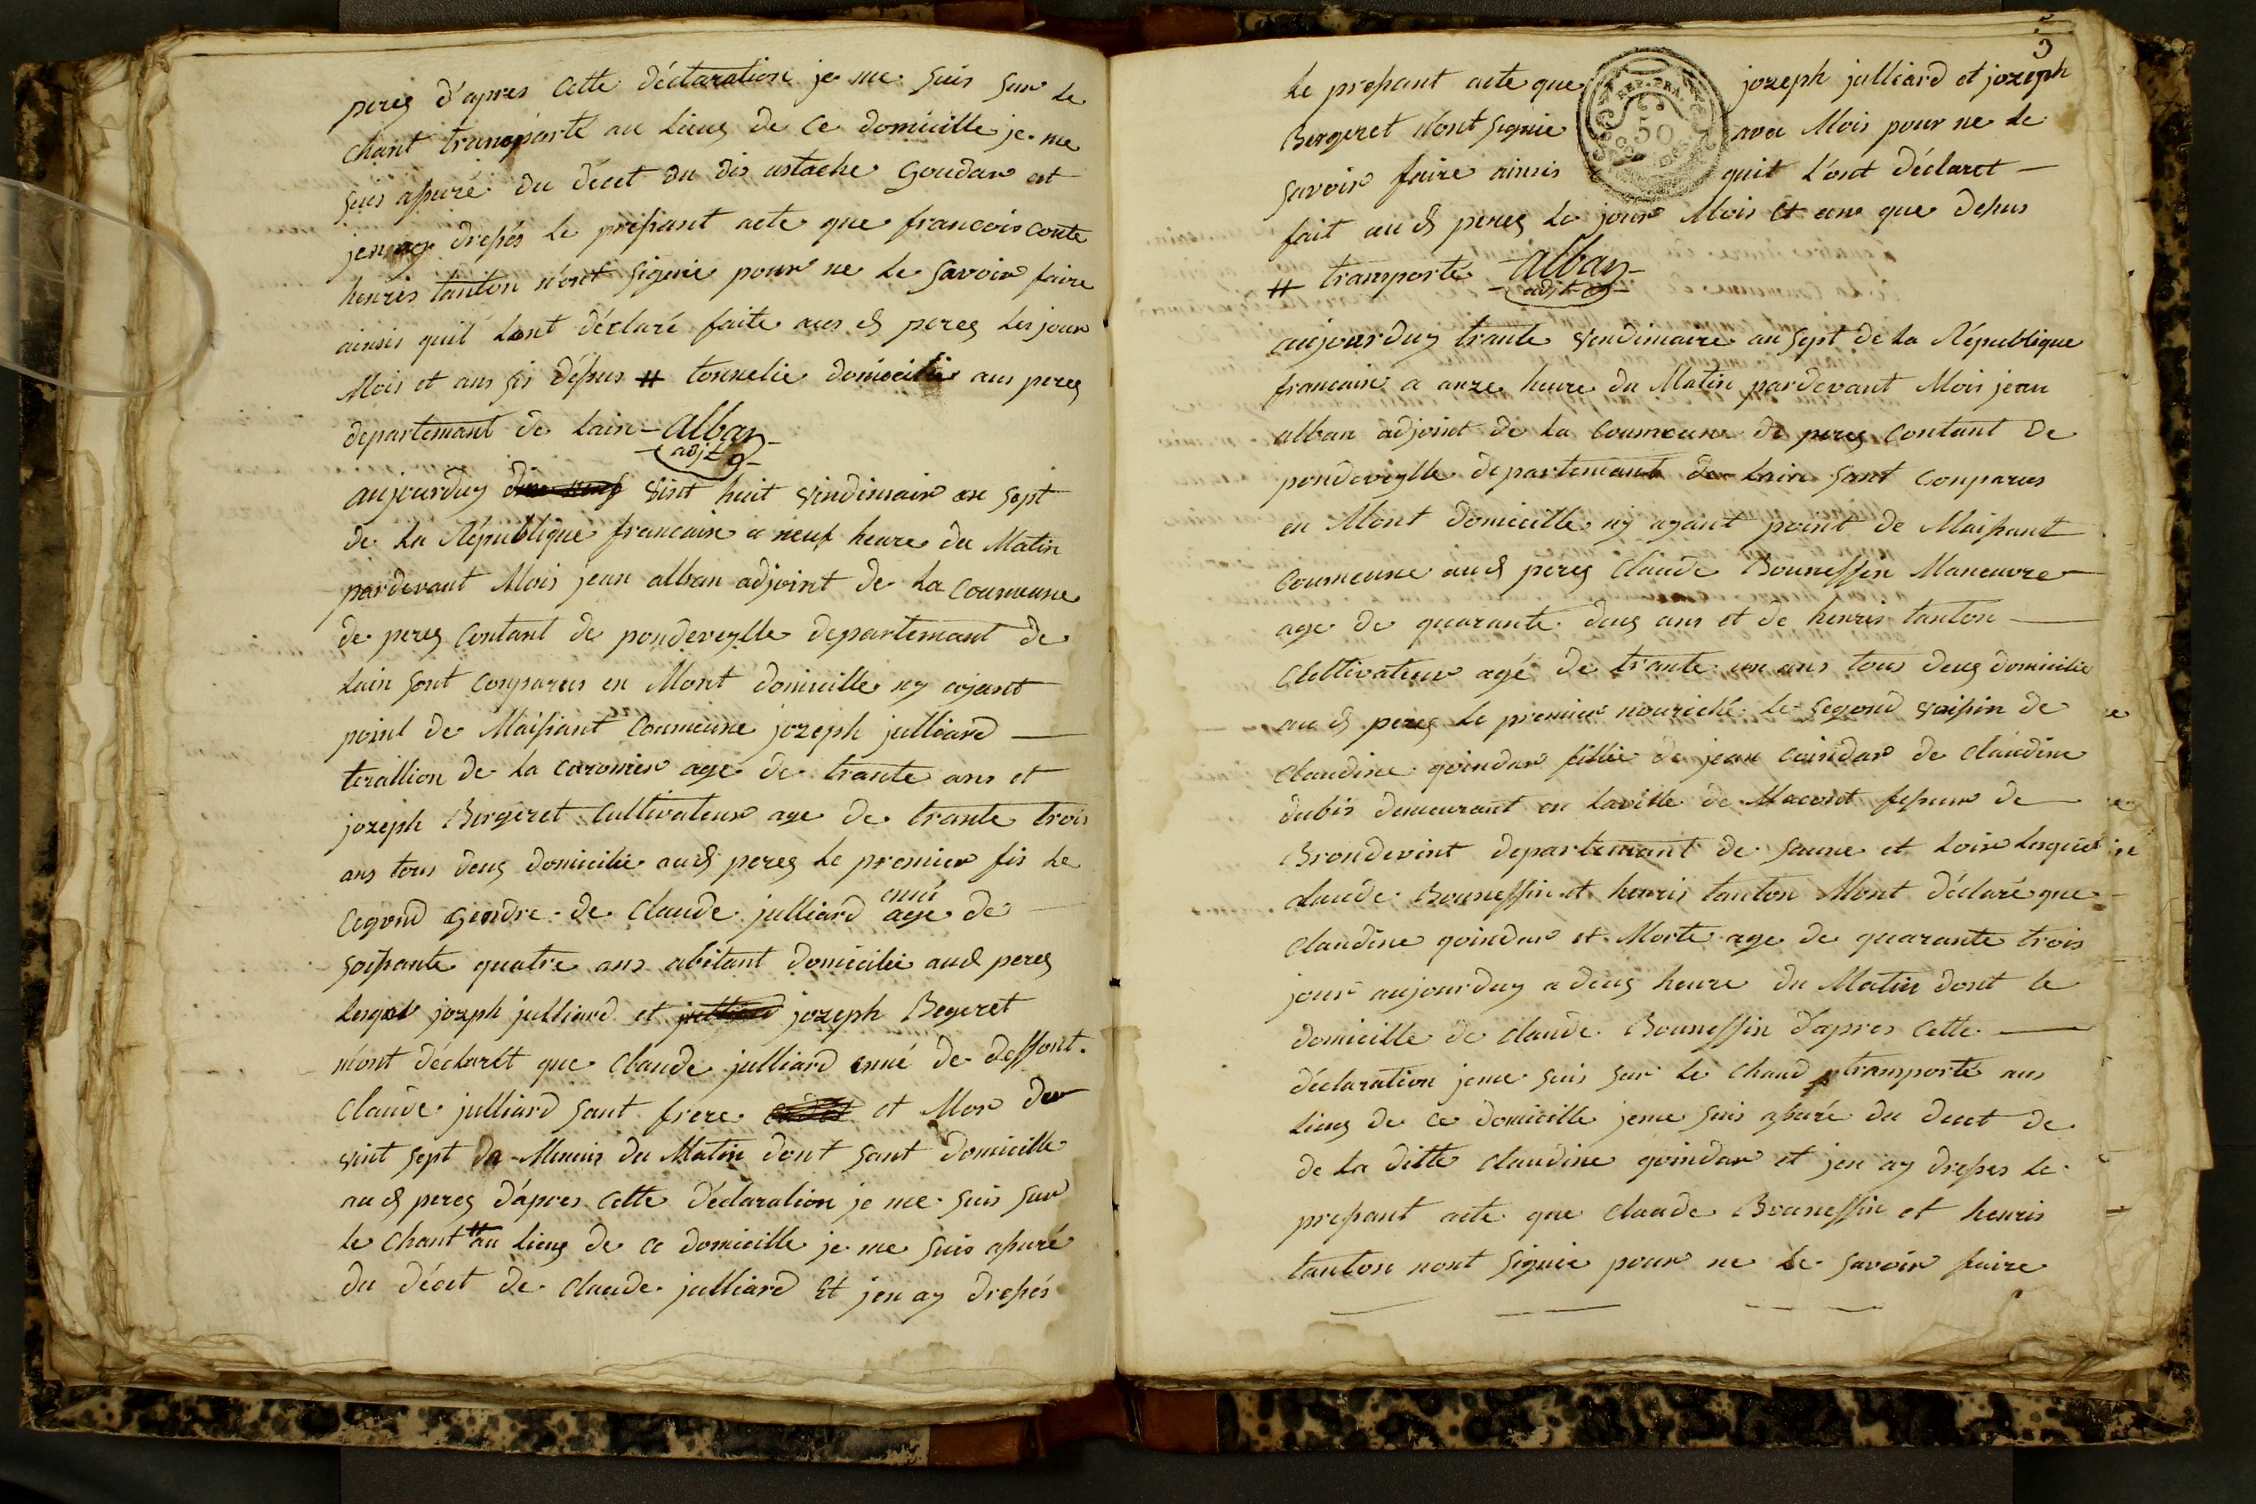 perez d'apres Cette déclaration je me suis sur le
chant transporté au Lieuz de Ce domicille je me
suis assuré du décet du dis ustache Goudar et
jen ay dressés le pressant acte que francois Conte
henris tanton n'ont signié pour ne le Savoir faire
ainsis quil Lont déclaré faite aus d perez les jour
Mois et ans sis désus # tonnelié domicilié aus perez
departemant de Lain - alban
adjt
aujourduy vint huit vindimair an sept
de La République francaise a neuf heure du Matin
pardevant Mois jean alban adjoint de La Coumeune
de perez Contant de pondeveylle departemant de
Lain sont Conparus en Mont domicille ny ayant
point de Maissant Coumeune jozeph julliard
terallion de La caronier age de trante ans et
jozeph Bergeret Cultivateur age de trante trois
ans tous deuz domicilié aud perez Le premier fis Le
Cegond Gendre de Claude julliard enné age de
soissante quatre ans abitant domicilié aud perez
Lesqel jozeph julliard et jozeph Begeret
m'ont déclarét que Claude julliard enné de deffont
Claude julliard sont frere et Mor du
vint sept du Menuis du Matin dont sont domicille
au d perez d'apres Cette déclaration je me suis sur
le Chant # au Lieuz de ce domicille je me suis assuré
du décet de Claude julliard Et jen ay dressés
3
Le pressant acte que jozeph julliard et jozeph
Bergeret n'ont signié avec Mois pour ne Le
Savoir faire ainsis quit L'ont déclaret
fait au d perez Le jour Mois et an que desus
# transporté alban
adjt
REP. FRA.
50
aujourduy trante vendimaire an sept de La République
francaise a onze heure du Matin pardevant Mois jean
alban adjoint de La Coumeune de perez Contant de
pondeveylle departemant de Lain sont Conparus
en Mont domicille ny ayant point de Maissant
Coumeune aud perez Claude Bouneffin Maneuvre
age de quarante deuz ans et de henris tanton
Cleltivateur agé de trante un ans tous deuz domicilié
au d perez Le premier nourichié Le Segond voisin de
Claudine goindar fillie de jean Coindar de Claudine
dubis demeurant en Laville de Macont fesseur de
Brondevint departemant de Saune et Loire Lesquel
Claude Bouneffin et henris tanton Mont déclaré que
Claudine goindar et Morte age de quarante trois
jour aujourduy a deuz heure du Matin dont le
domicille de Claude Bouneffin d'apres Cette
déclaration jeme suis sur le Chand transporté aus
Lieuz de Ce domicille jeme suis assuré du decet de
de La ditte Claudine goindar et jen ay dresses Le
pressant acte que Claude Bouneffin et henris
tanton nont signié pour ne Le Savoir faire